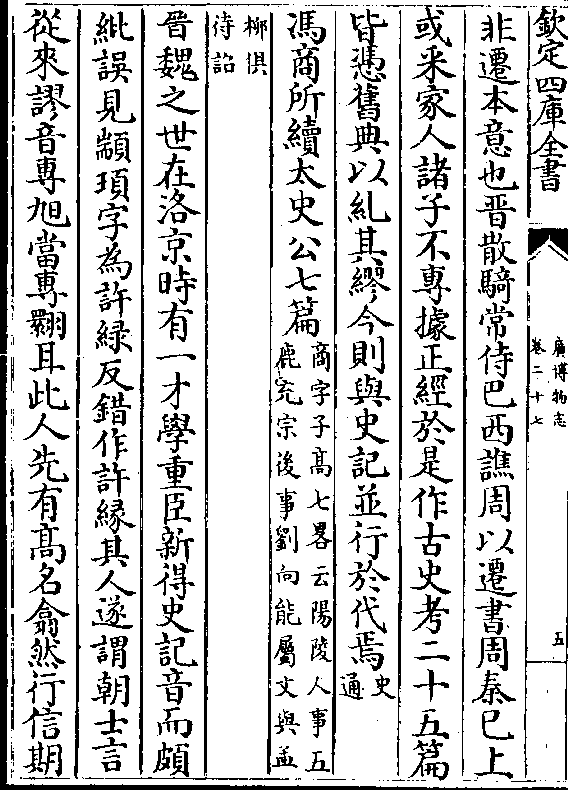 欽定四庫全書
廣博物志
卷二十七
五
非遷本意也晉散騎常侍巴西譙周以遷書周秦已上
或采家人諸子不專據正經於是作古史考二十五篇
皆憑舊典以糺其繆今則與史記並行於代焉史通
馮商所續太史公七篇商字子高七畧云陽陵人事五鹿充宗後事劉向能屬文與孟
柳俱待詔
晉魏之世在洛京時有一才學重臣新得史記音而頗
紕誤見顓頊字為許緑反錯作許縁其人遂謂朝士言
從來謬音專旭當專翾耳此人先有高名翕然行信期